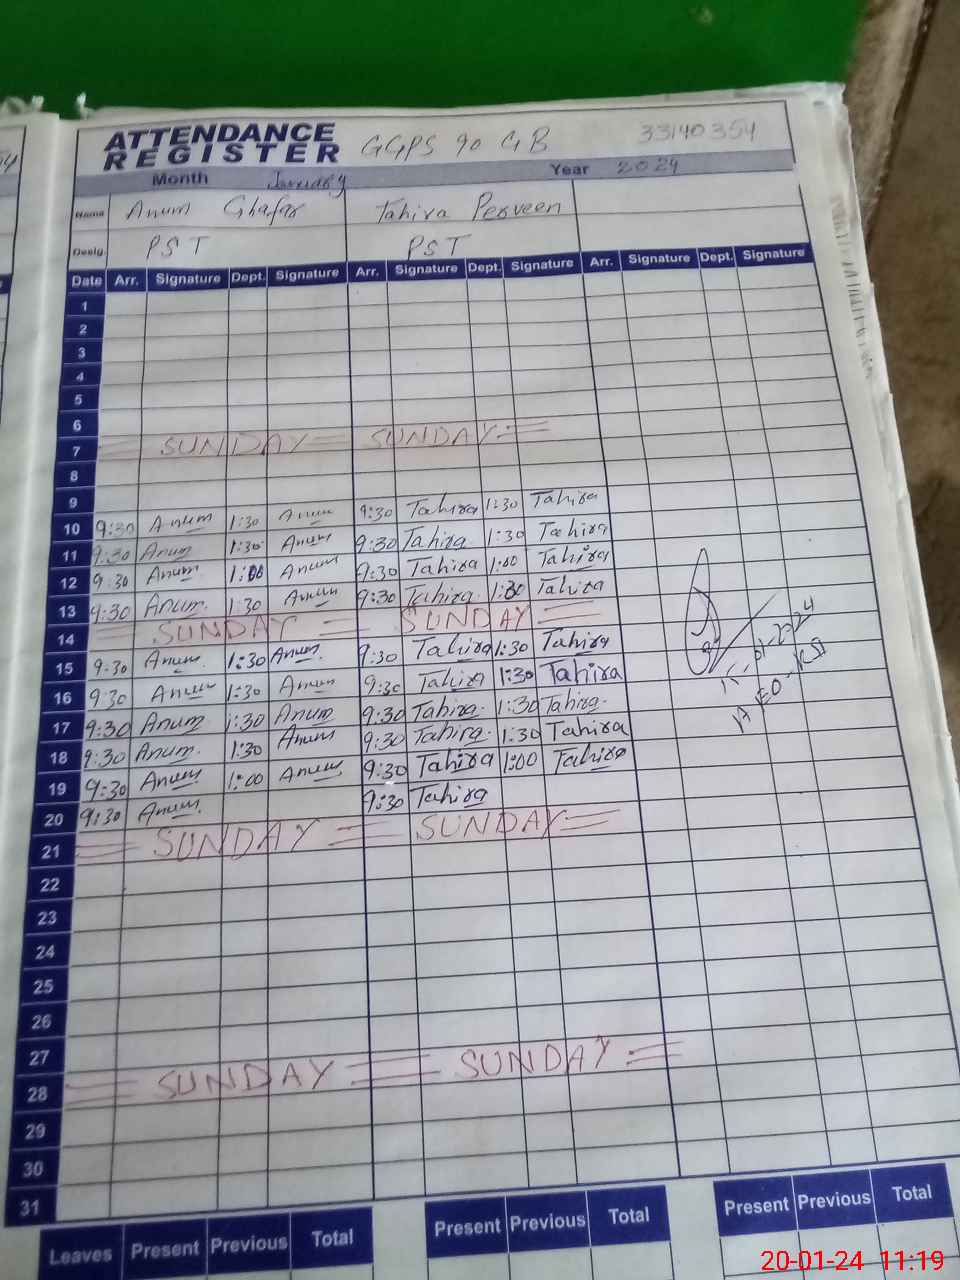 ATTENDANCE REGISTER GGPS 90 GB 33140354
Month January Year 2024
Name Anum Ghafar Tahira Perveen
Desig. PST PST
Date Arr. Signature Dept. Signature Arr. Signature Dept. Signature Arr. Signature Dept. Signature
1
2
3
4
5
6
7 SUNDAY SUNDAY
8
9
10 9:30 Anum 1:30 Anum 9:30 Tahira 1:30 Tahira
11 9:30 Anum 1:30 Anum 9:30 Tahira 1:30 Tahira
12 9:30 Anum 1:00 Anum 9:30 Tahira 1:00 Tahira
13 9:30 Anum 1:30 Anum 9:30 Tahira 1:30 Tahira
14 SUNDAY SUNDAY
15 9:30 Anum 1:30 Anum 9:30 Tahira 1:30 Tahira
16 9:30 Anum 1:30 Anum 9:30 Tahira 1:30 Tahira
17 9:30 Anum 1:30 Anum 9:30 Tahira 1:30 Tahira
18 9:30 Anum 1:30 Anum 9:30 Tahira 1:30 Tahira
19 9:30 Anum 1:00 Anum 9:30 Tahira 1:00 Tahira
20 9:30 Anum 9:30 Tahira
21 SUNDAY SUNDAY
22
23
24
25
26
27
28 SUNDAY SUNDAY
29
30
31
Leaves Present Previous Total Present Previous Total Present Previous Total
20-01-24 11:19